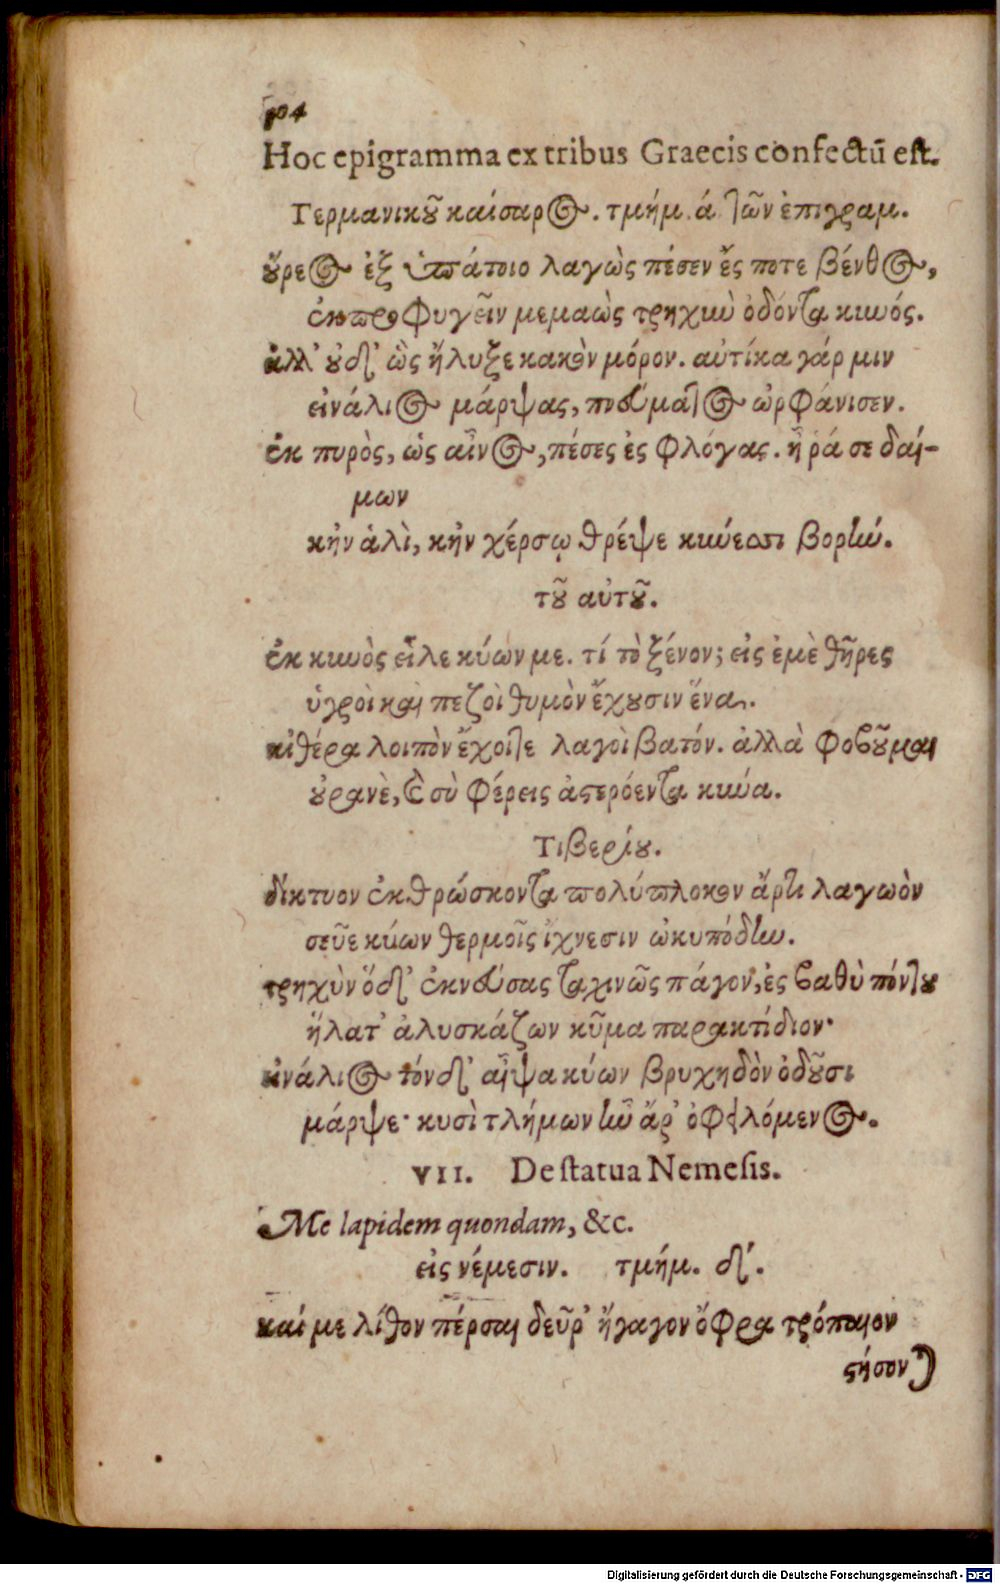 104
Hoc epigramma ex tribus Graecis confectū est.
Γερμανικοῦ καίσαρος. τμήμ. ά τῶν ἐπιγραμ.
οὔρεος ἐξ ὑπάτοιο λαγὼς πέσεν ἔς ποτε βένθος,
ἐκπροφυγεῖν μεμαὼς τρηχὺν ὀδόντα κυνός.
ἀλλ' οὐδ' ὣς ἤλυξε κακὸν μόρον. αὐτίκα γάρ μιν
εἰνάλιος μάρψας, πνεύματος ὠρφάνισεν.
ἐκ πυρὸς, ὡς αἶνος, πέσες ἐς φλόγας. ἦ ῥά σε δαί-
μων
κἠν ἁλὶ, κἠν χέρσῳ θρέψε κύνεσσι βορήν.
τοῦ αὐτοῦ.
ἐκ κυνὸς εἷλε κύων με. τί τὸ ξένον; εἰς ἐμὲ θῆρες
ὑγροὶ καὶ πεζοὶ θυμὸν ἔχουσιν ἕνα.
αἰθέρα λοιπὸν ἔχοιτε λαγοὶ βατόν. ἀλλὰ φοβοῦμαι
οὐρανὲ, καὶ σὺ φέρεις ἀστερόεντα κύνα.
Τιβερίου.
δίκτυον ἐκθρώσκοντα πολύπλοκον ἄρτι λαγωὸν
σεῦε κύων θερμοῖς ἴχνεσιν ὠκυπόδην.
τρηχὺν ὅδ' ἐκνεύσας ταχινῶς πάγον, ἐς βαθὺ πόντου
ἥλατ' ἀλυσκάζων κῦμα παρακτίδιον·
εἰνάλιος τόνδ' αἶψα κύων βρυχηδὸν ὀδοῦσι
μάρψε· κυσὶ τλήμων ἦν ἄρ' ὀφειλόμενος.
VII. De statua Nemesis.
Me lapidem quondam, &c.
εἰς νέμεσιν. τμήμ. δ'.
καί με λίθον πέρσαι δεῦρ' ἤγαγον ὄφρα τρόπαιον
στήσον)
Digitalisierung gefördert durch die Deutsche Forschungsgemeinschaft - DFG